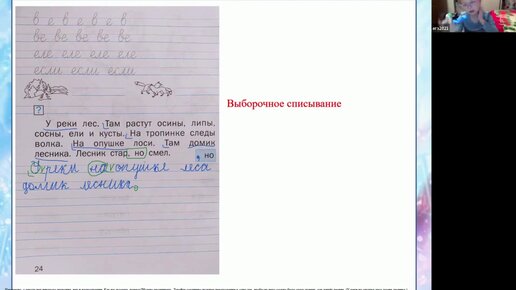 в е в е в е в
ве ве ве ве ве
еле еле еле еле
если если если
?
У реки лес. Там растут осины, липы,
сосны, ели и кусты. На тропинке следы
волка. На опушке лоси. Там домик
лесника. Лесник стар, но смел.
, но
У реки на опушке леса
домик лесника.
24
Выборочное списывание